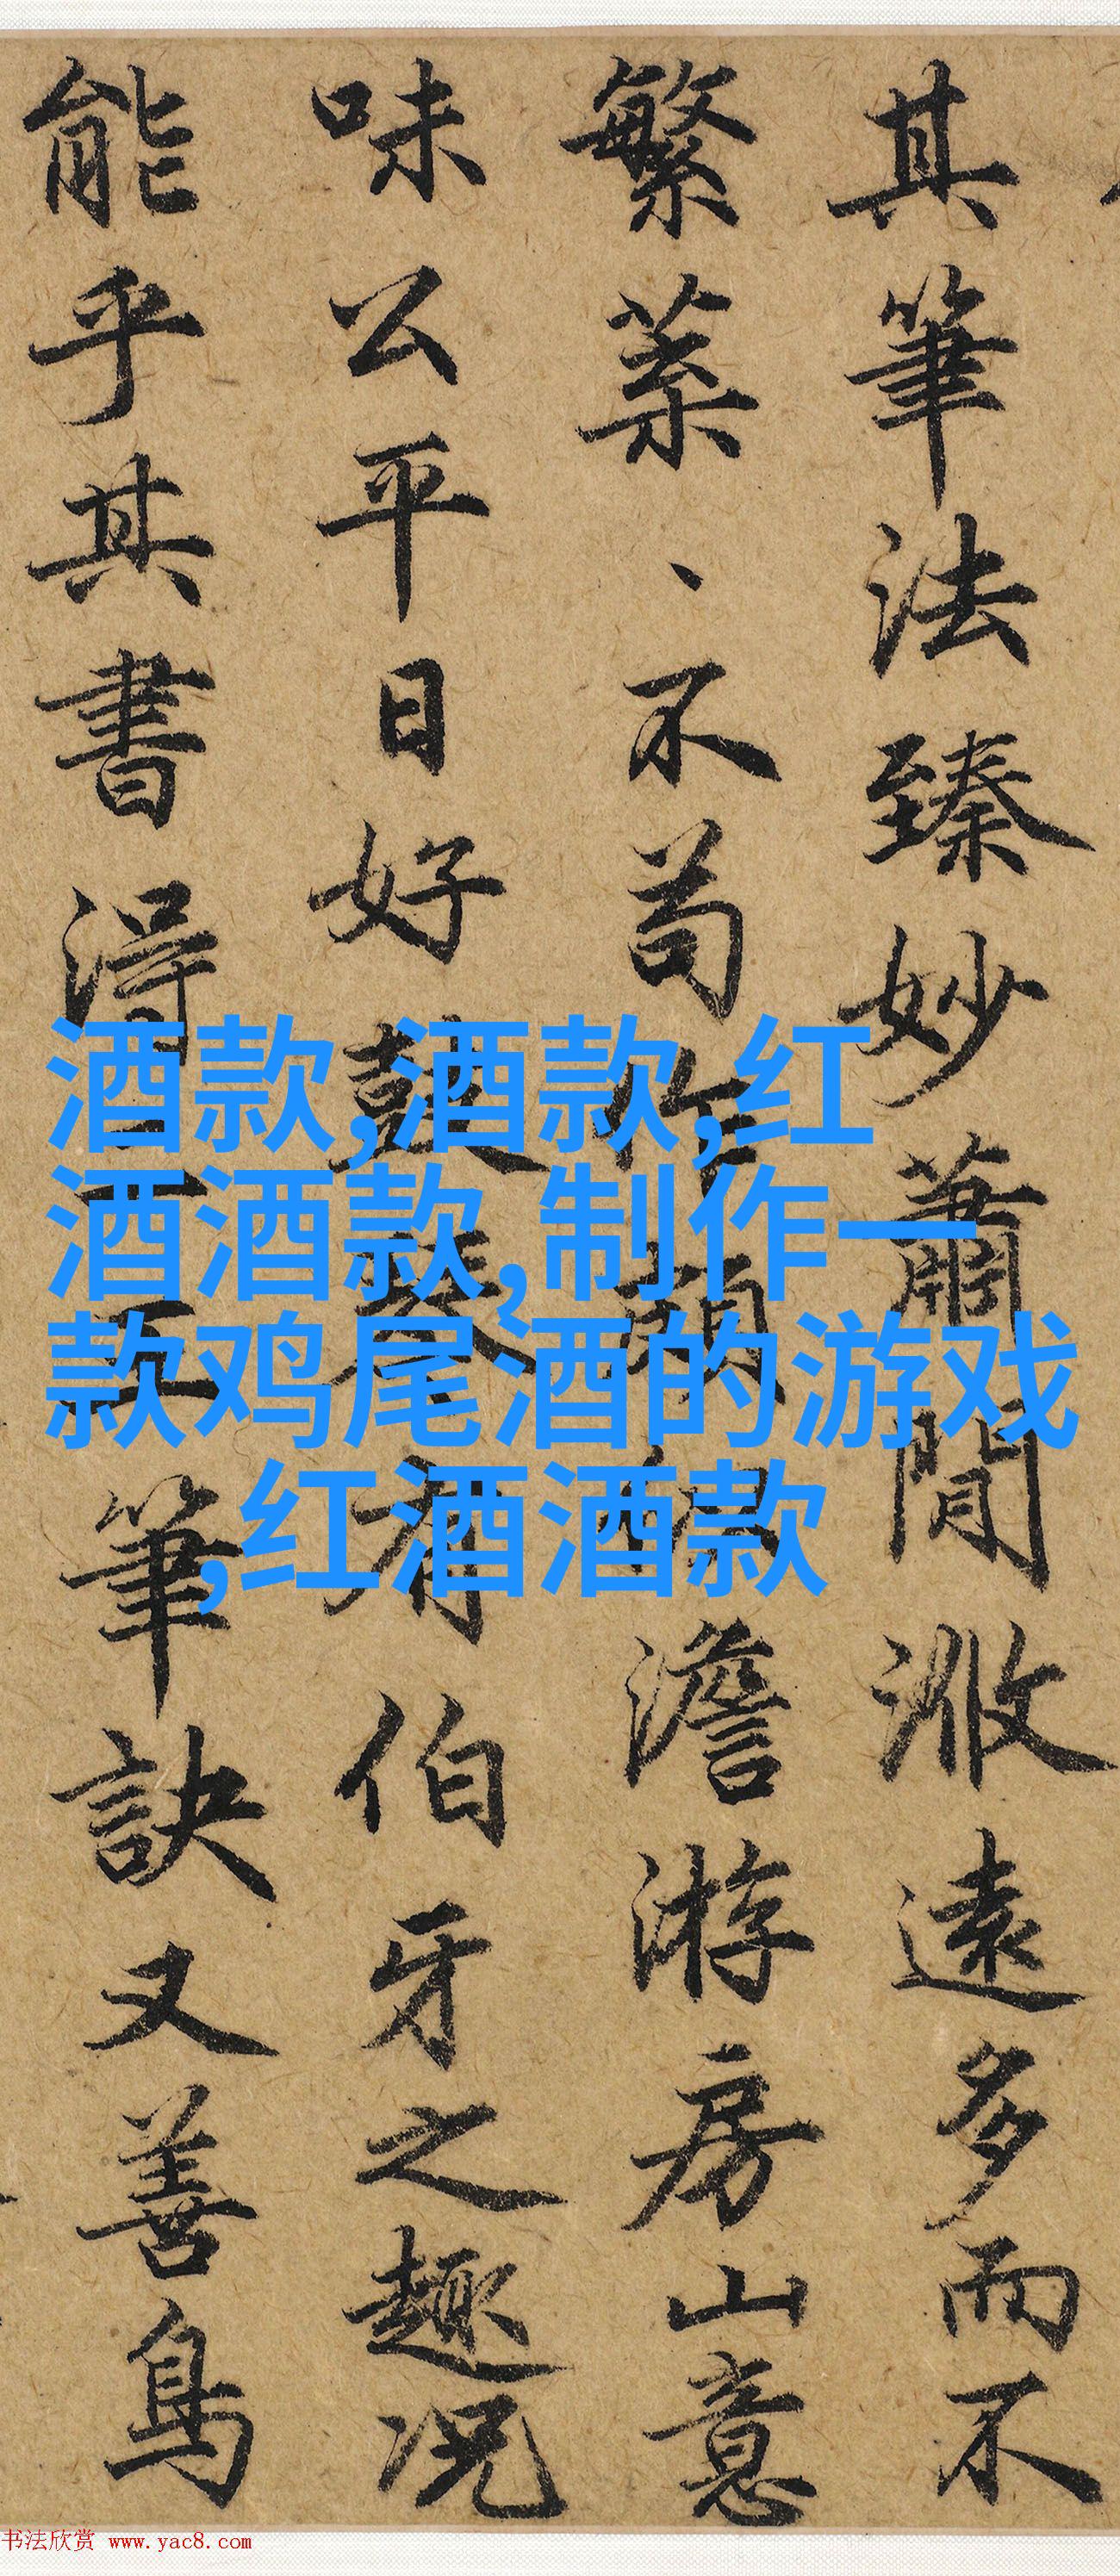 其筆法臻妙蕭閒遠多而不
繁不苟作頗澹游房山意
味公平日好鼓琴有伯牙之趣况
能乎其書得二王筆訣又善鳥
酒款,酒款,红
酒酒款,制作一
款鸡尾酒的游戏
,红酒酒款
书法欣赏 www.yac8.com